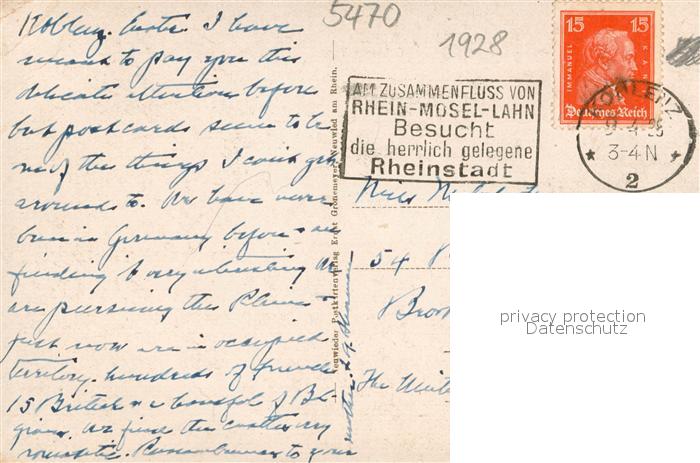 Koblenz. I have
meant to pay you this
delicate attention before
but postcards seem to be
one of the things I can't get
around to. We have never
been in Germany before & are
finding it very interesting. We
are pursuing the Rhine &
just now are in occupied
territory. hundreds of French
15 British & a handful of Bel-
gians. We find the castles very
romantic. Remembrances to your
mother.
5470
1928
AM ZUSAMMENFLUSS VON
RHEIN-MOSEL-LAHN
Besucht
die herrlich gelegene
Rheinstadt
15 15
IMMANUEL KANT
Deutsches Reich
KOBLENZ
3-4 N
2
Neuwieder Postkartenverlag Ernst Gronemeyer, Neuwied am Rhein.
Miss
54
The
privacy protection
Datenschutz